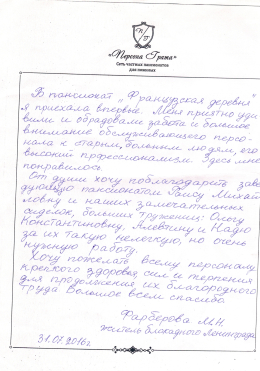 «Персона Грата»
Сеть частных пансионатов
для пожилых
В пансионат „Французская деревня"
я приехала впервые. Меня приятно уди
вили и обрадовали забота и большое
внимание обслуживающего персо-
нала к старым, больным людям, его
высокий профессионализм. Здесь мне
понравилось.
От души хочу поблагодарить заве
дующую пансионатом Михай
ловну и наших замечательных
сиделок, больших тружениц: Ольгу
Константиновну, Алевтину и Надю
за их такую нелегкую, но очень
нужную работу.
Хочу пожелать всему персоналу
крепкого здоровья, сил и терпения
для продолжения их благородного
труда Большое всем спасибо
Фарберова М.Н.
житель блокадного Ленинграда
31.01.2016г